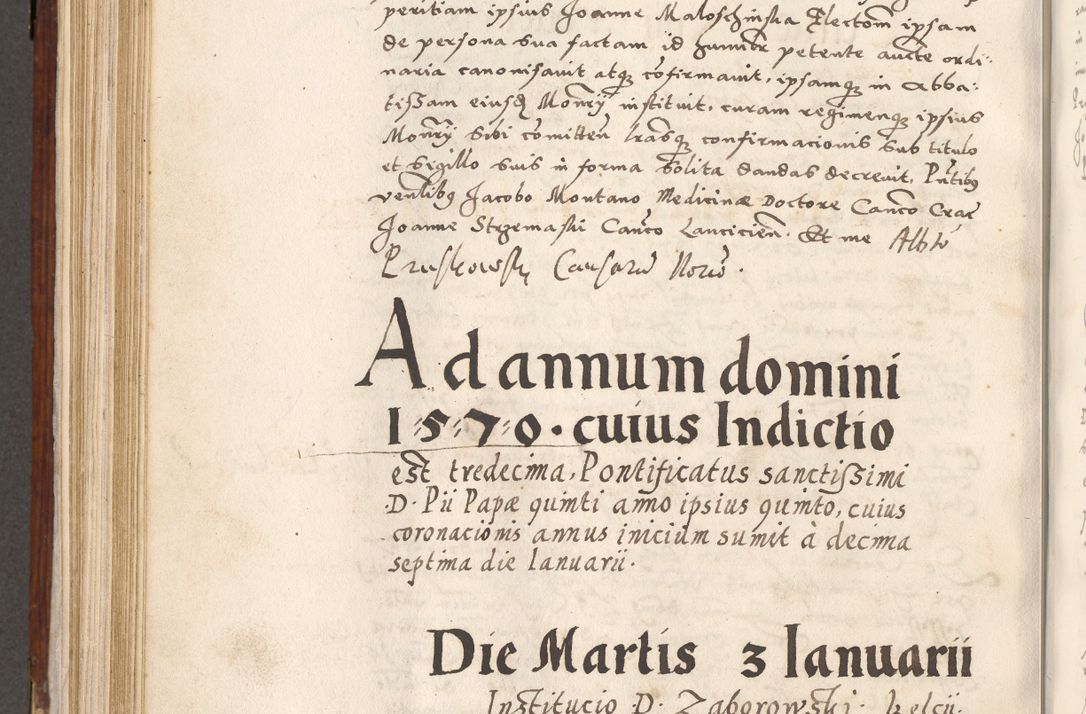 peritiam ipsius Joanne Maloschinska Electom ipsam
de persona sua factam id petente aucte ordi:
naria canonisavit atq confirmavit, ipsamq in Abba:
tissam eiusd Monrÿ instituit, curam regimenq ipsius
Monrÿ sibi comitten lrasq confirmacionis sub titulo
et sigillo suis in forma solita dandas decrevit, Pntibq
venlibq Jacobo Montano Medicinæ Doctore Canco Crac
Joanne Strzemaski Canco Lancicien. Et me Albto
Pruskowsky Causaru Norio.
Ad annum domini
1570. cuius Indictio
est tredecima, Pontificatus sanctissimi
D. Pii Papæ quinti anno ipsius quinto, cuius
coronacionis annus inicium sumit à decima
septima die Ianuarii.
Die Martis 3 Ianuarii
Institucio D. Zaborowski. Kelcii.